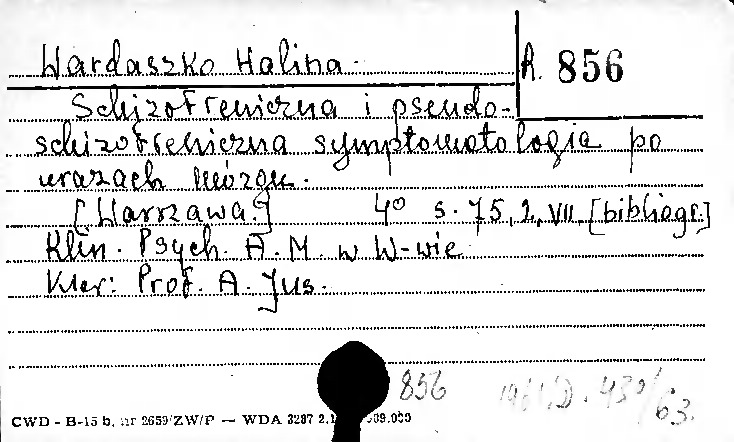 Wardaszko Halina.
R. 856
Schizofreniczna i pseudo-
schizofreniczna symptomatologia po
urazach mózgu.
[Warszawa.] 4° s. 75, 2, VII. [bibliogr.]
Klin. Psych. A. M. w W-wie
Kier: Prof. A. Jus.
856
CWD - B-15 b, nr 2659/ZW/P — WDA 3287